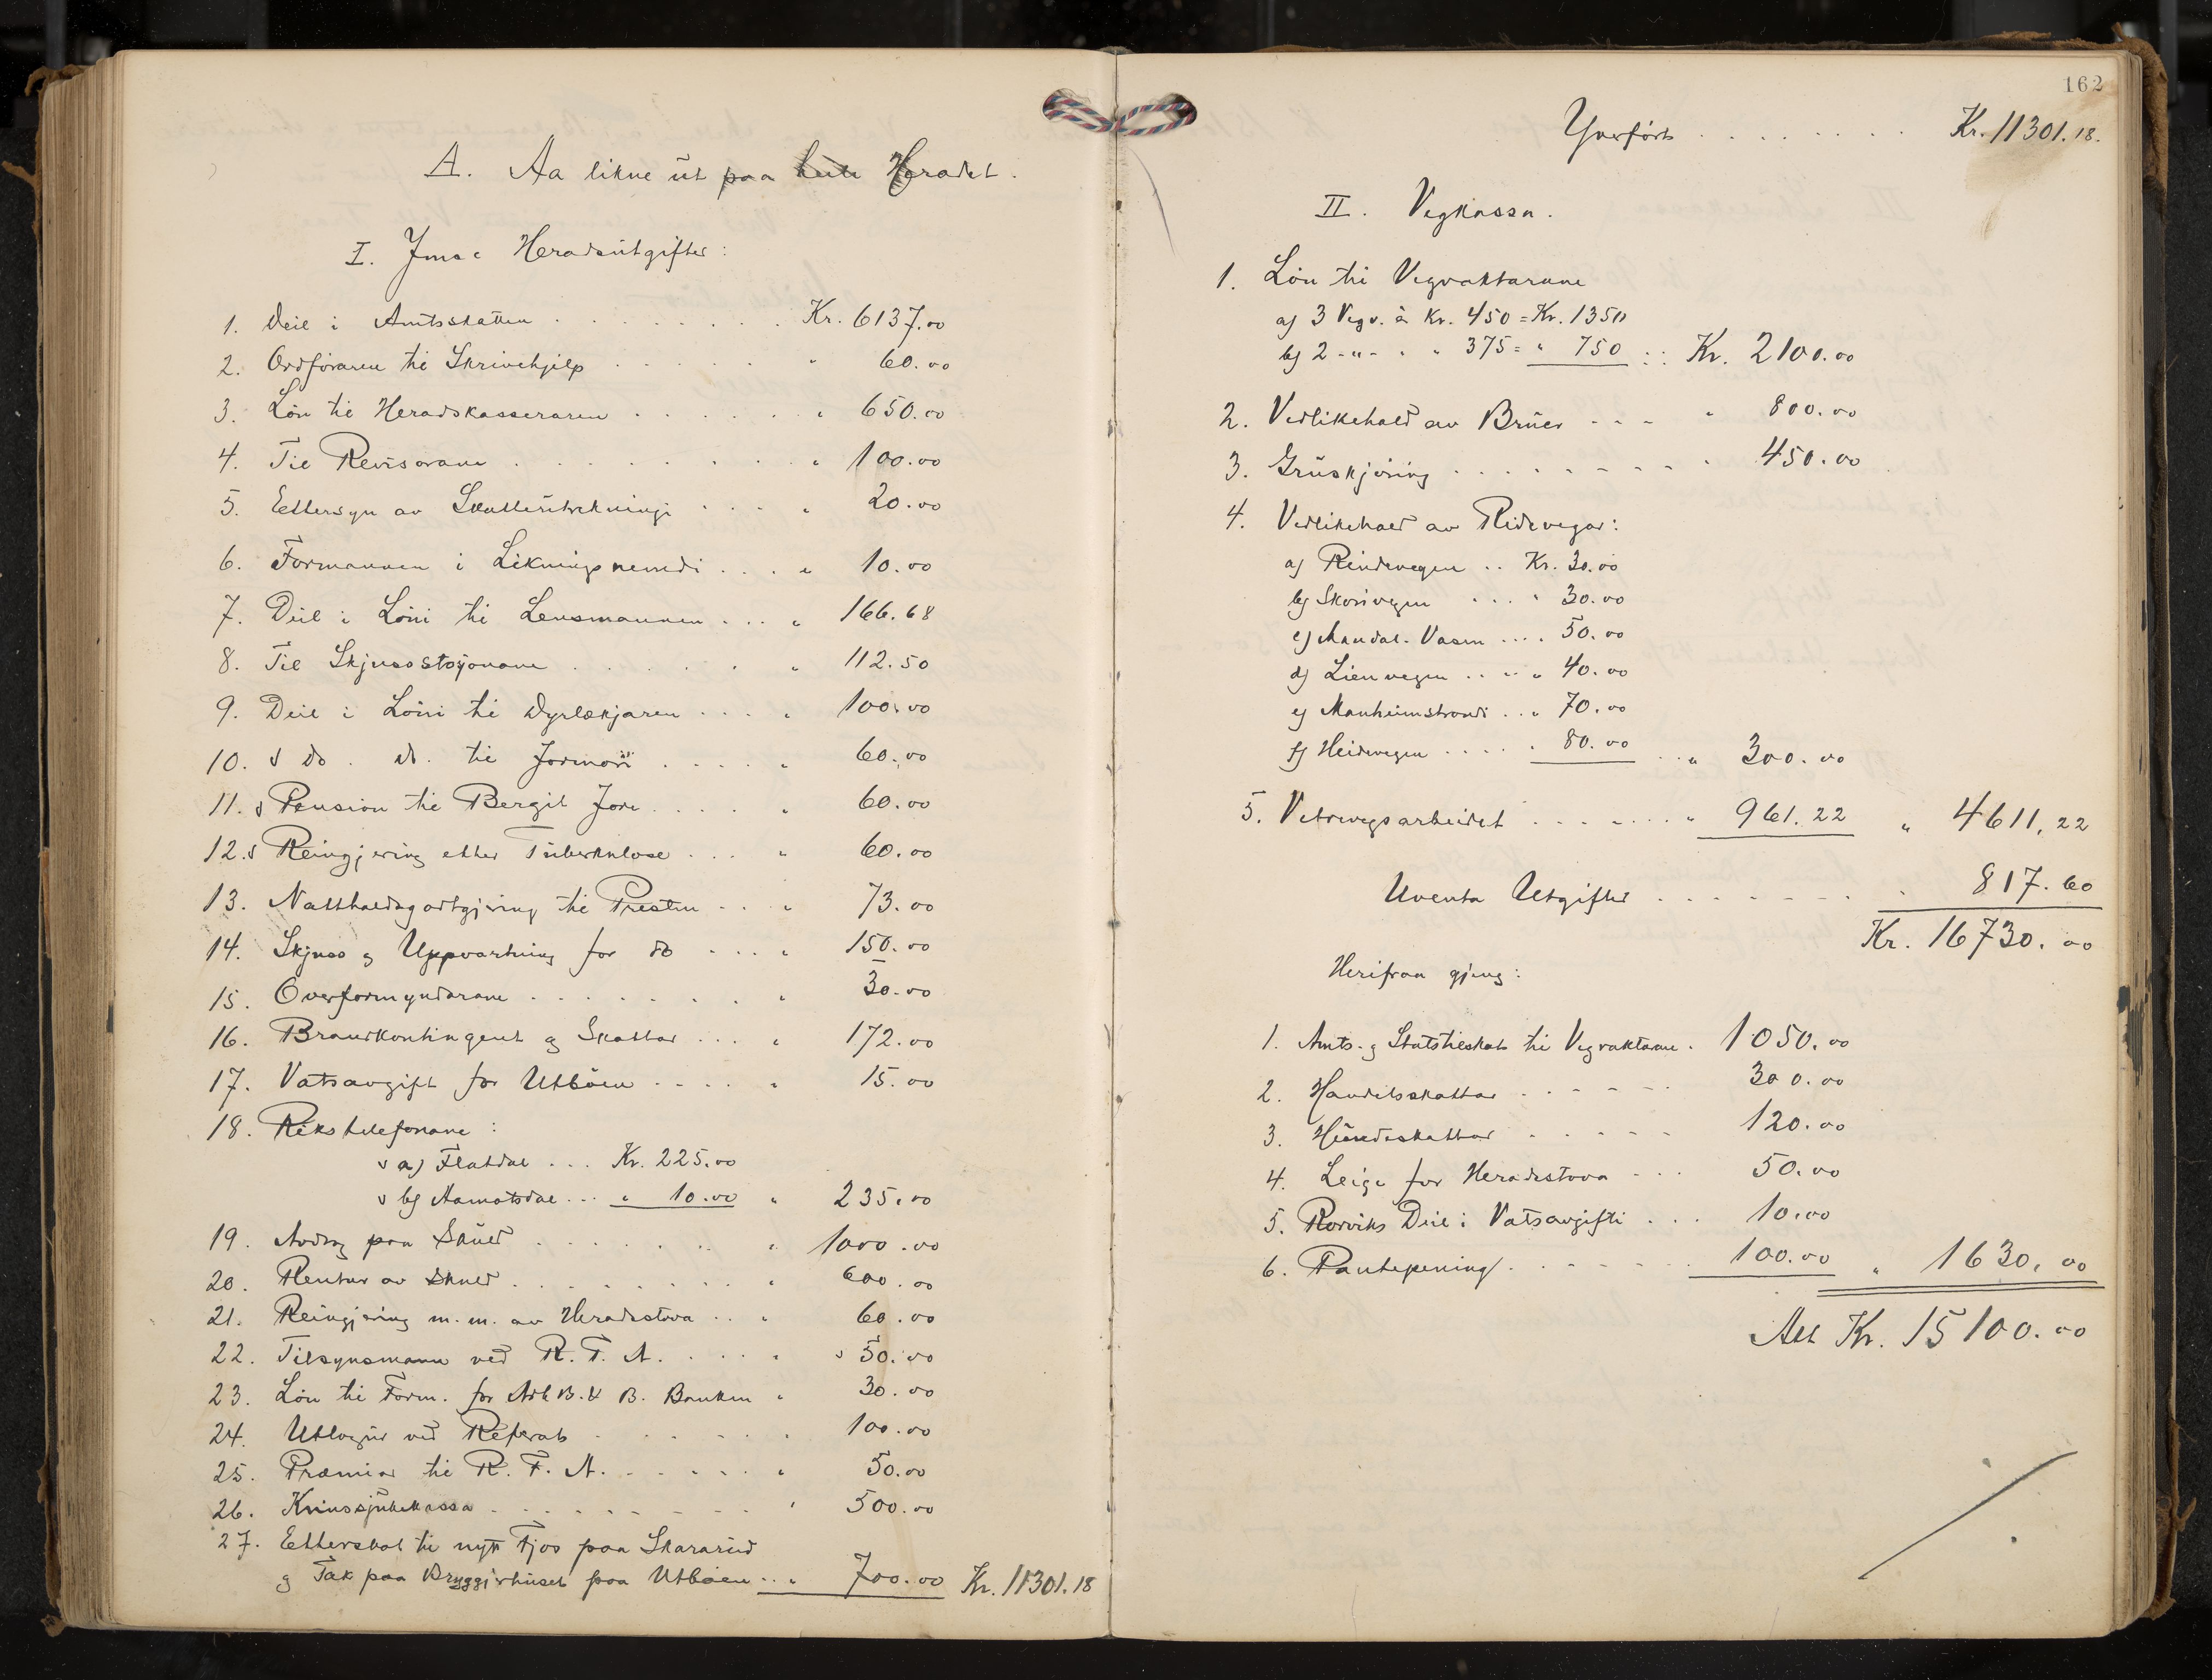 A. Aa likne ut paa Heradet.
I. Ymse Heradsutgifter:
1. Deil i Amtsskatten . . . . . . . Kr. 6137.00
2. Ordføraren til Skrivehjelp . . . . . " 60.00
3. Løn til Heradskasseraren . . . . . . " 650.00
4. Til Revisorane . . . . . . . . " 100.00
5. Ettersyn av Skatteutrekningi . . . . " 20.00
6. Formannen i Likningsnemdi . . . " 10.00
7. Deil i Løni til Lensmannen . . . " 166.68
8. Til Skjusstasjonane . . . . . . " 112.50
9. Deil i Løni til Dyrlækjaren . . . . " 100.00
10. do. do. til Jormori . . . . " 60.00
11. Pension til Bergit Jore . . . . " 60.00
12. Reingjering etter Tuberkulose . . . " 60.00
13. Natthaldsgodtgjering til Presten . . . " 73.00
14. Skjuss og Uppvartning for do . . . " 150.00
15. Overformyndarane . . . . . . . . " 30.00
16. Brandkontingent og Skattar . . . " 172.00
17. Vatsavgift for Utbøen . . . . " 15.00
18. Rikstelefonane:
a) Flatdal . . . Kr. 225.00
b) Aamotsdal . . . " 10.00 " 235.00
19. Avdrag paa Skuld . . . . . . . " 1000.00
20. Rentur av Skuld . . . . . . . . " 600.00
21. Reingjering m.m. av Heradstova . . . " 60.00
22. Tilsynsmann ved R. T. A. . . . . " 50.00
23. Løn til Form. for Arb. B. & B. Banken " 30.00
24. Utlogur ved Referat . . . . . . " 100.00
25. Præmiar til R. F. A. . . . . . . " 50.00
26. Krinssjukekassa . . . . . . . . " 500.00
27. Etterskot til nytt Fjos paa Skararud
og Tak paa Bryggjarhuset paa Utbøen . . " 700.00 Kr. 11301.18
162
Yverført . . . . . . . . Kr. 11301.18.
II. Vegkassa.
1. Løn til Vegvaktarane
a) 3 Vegv. à Kr. 450 = Kr. 1350
b) 2 -"- " " 375 = " 750 : : Kr. 2100.00
2. Vedlikehald av Bruer - - - " 800.00
3. Gruskjøring . . . . . . . . . " 450.00
4. Vedlikehald av Ridevegar:
a) Rindevegen . . Kr. 30.00
b) Skorivegen . . . " 30.00
c) Mandal-Vasen . . . " 50.00
d) Lienvegen . . . . " 40.00
e) Manheimstrondi . . " 70.00
f) Heidevegen . . . . . " 80.00 . . " 300.00
5. Vetrevegsarbeidet . . . . . . . " 961.22 " 4611,22
Uventa Utgifter . . . . . . . . " 817.60
Kr. 16730.00
Herifraa gjeng:
1. Amts- og Statstilskot til Vegvaktarane . 1050.00
2. Handelsskattar . . . . . . 300.00
3. Hundeskattar . . . . . 120.00
4. Leige for Heradstova - - - 50.00
5. Rorviks Deil i Vatsavgifti . . . 10.00
6. Pantepening . . . . . . . 100.00 " 1630,00
Alt Kr. 15100.00